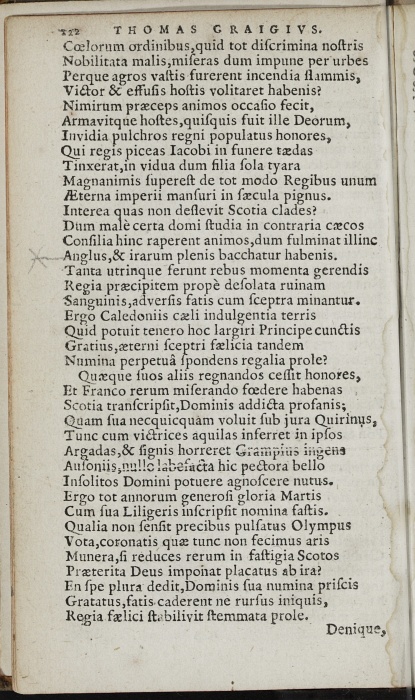 222 THOMAS CRAIGIVS.
Cœlorum ordinibus, quid tot diſcrimina noſtris
Nobilitata malis, miſeras dum impune per vrbes
Perque agros vaſtis furerent incendia flammis,
Victor & effuſis hoſtis volitaret habenis?
Nimirum præceps animos occaſio fecit,
Armavitque hoſtes, quiſquis fuit ille Deorum,
Invidia pulchros regni populatus honores,
Qui regis piceas Iacobi in funere tædas
Tinxerat, in vidua dum filia ſola tyara
Magnanimis ſupereſt de tot modo Regibus unum
Æterna imperii manſuri in ſæcula pignus.
Interea quas non deflevit Scotia clades?
Dum malè certa domi ſtudia in contraria cæcos
Conſilia hinc raperent animos, dum fulminat illinc
Anglus, & irarum plenis bacchatur habenis.
Tanta utrinque ferunt rebus momenta gerendis
Regia præcipitem propè deſolata ruinam
Sanguinis, adverſis fatis cum ſceptra minantur.
Ergo Caledoniis cæli indulgentia terris
Quid potuit tenero hoc largiri Principe cunctis
Gratius, æterni ſceptri fælicia tandem
Numina perpetuâ ſpondens regalia prole?
Quæque ſuos aliis regnandos ceſſit honores,
Et Franco rerum miſerando fœdere habenas
Scotia tranſcripſit, Dominis addicta profanis;
Quam ſua necquicquàm voluit ſub jura Quirinus,
Tunc cum victrices aquilas inferret in ipſos
Argadas, & ſignis horreret Grampius ingens
Auſoniis, nullo labefacta hic pectora bello
Inſolitos Domini potuere agnoſcere nutus.
Ergo tot annorum generoſi gloria Martis
Cum ſua Liligeris inſcripſit nomina faſtis.
Qualia non ſenſit precibus pulſatus Olympus
Vota, coronatis quæ tunc non fecimus aris
Munera, ſi reduces rerum in faſtigia Scotos
Præterita Deus imponat placatus ab ira?
En ſpe plura dedit, Dominis ſua numina priſcis
Gratatus, fatis caderent ne rurſus iniquis,
Regia fælici ſtabilivit ſtemmata prole.
Denique,